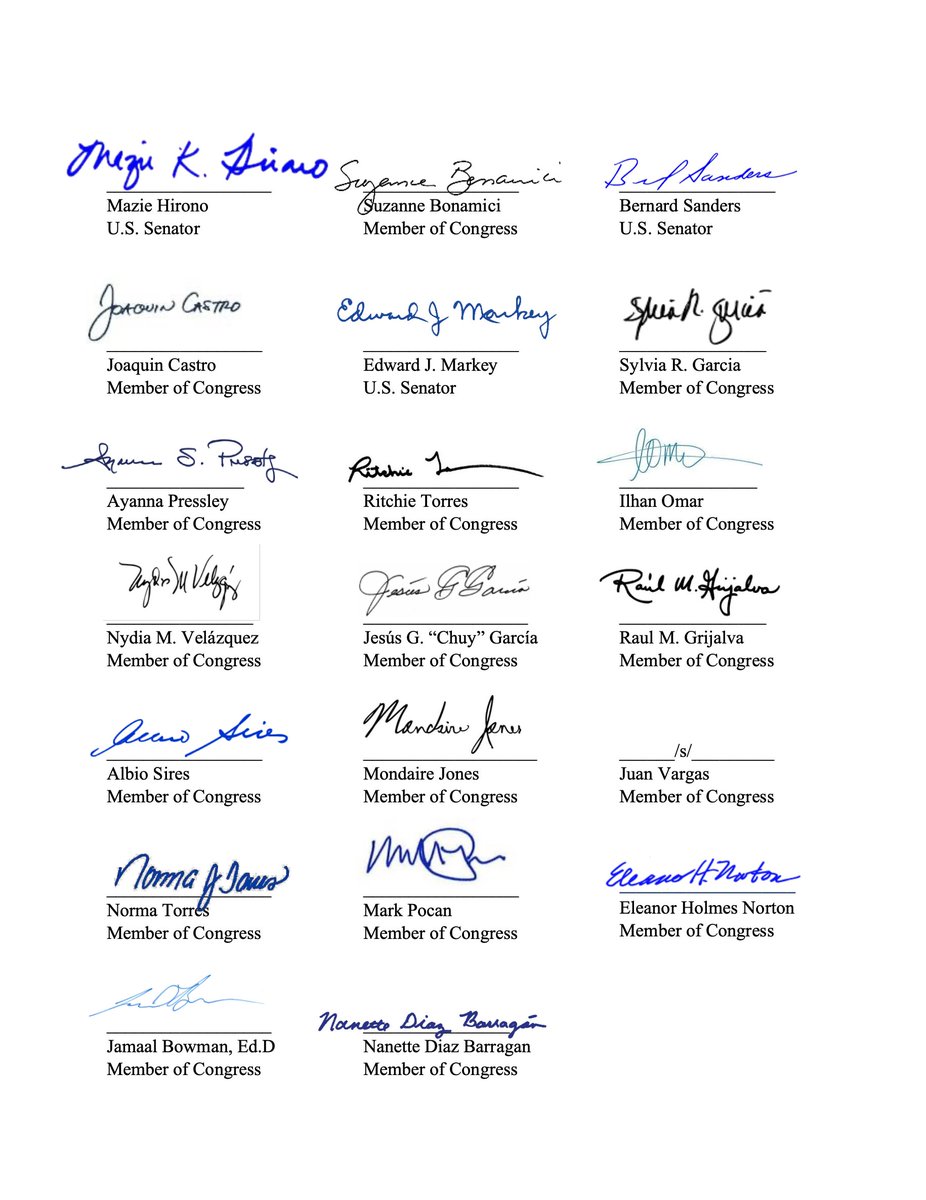 Mazie K. Hirono
Suzanne Bonamici
Bernard Sanders
Mazie Hirono
Suzanne Bonamici
Bernard Sanders
U.S. Senator
Member of Congress
U.S. Senator
Joaquin Castro
Edward J Markey
Sylvia R. Garcia
Joaquin Castro
Edward J. Markey
Sylvia R. Garcia
Member of Congress
U.S. Senator
Member of Congress
Ayanna S. Pressley
Ritchie
Ayanna Pressley
Ritchie Torres
Ilhan Omar
Member of Congress
Member of Congress
Member of Congress
Nydia M Velázquez
Jesús G García
Raúl M. Grijalva
Nydia M. Velázquez
Jesús G. “Chuy” García
Raul M. Grijalva
Member of Congress
Member of Congress
Member of Congress
Albio Sires
Mondaire Jones
/s/
Albio Sires
Mondaire Jones
Juan Vargas
Member of Congress
Member of Congress
Member of Congress
Norma J Torres
Eleanor H Norton
Norma Torres
Mark Pocan
Eleanor Holmes Norton
Member of Congress
Member of Congress
Member of Congress
Nanette Diaz Barragán
Jamaal Bowman, Ed.D
Nanette Diaz Barragan
Member of Congress
Member of Congress